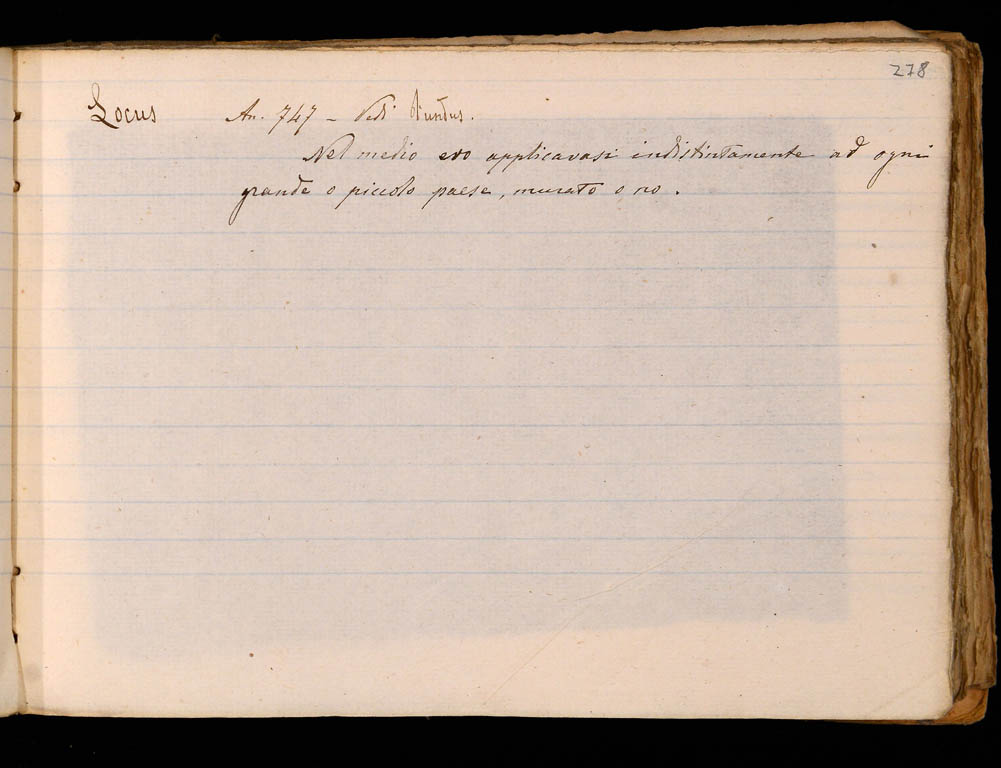 278
Locus An. 747 - Vedi Fundus.
Nel medio evo applicavasi indistintamente ad ogni
grande o piccolo paese, murato o no.